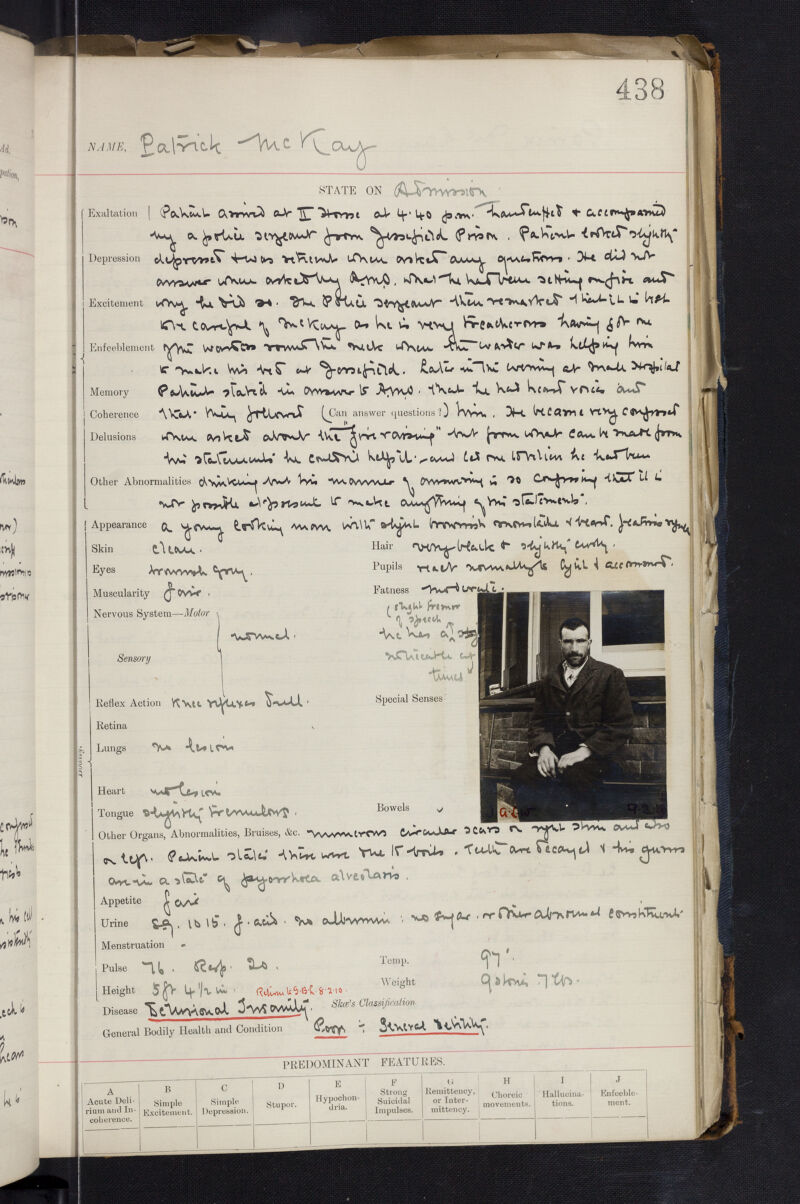 438
NAME. Patrick McKay
STATE ON Admission
Exaltation Patient arrived at II House at 4.40 p.m. handcuffed + accompanied
by a police sergeant from Jessfield Prison. Patient looked slightly
Depression depressed + was reticent when asked any questions. He did not
answer when asked by A.M.O. what he had been setting on fire and
Excitement why he did so. The Police sergeant then remarked that it is best
to be careful of McKay as he is very treacherous having got one
Enfeeblement of the warders round the neck when the warder was helping him
to make his bed at Jessfield. Later in the evening at Male Hospital
Memory Patient stated in answer to A.M.O. that he had heard voices and
Coherence that they followed (Can answer questions?) him. He became very confused
Delusions when asked about the "fire raising" but from what can be made from
his statements he couldn't help it - and led one to believe he had been
Other Abnormalities drinking but his manner of answering is so confusing that it is
not possible at present to make anything of his statements.
Appearance a young looking man with slight brownish moustache & beard. features
Skin clean. Hair very black & slightly curly.
Eyes brownish grey. Pupils react normally to light & accommod.
Muscularity fair. Fatness moderate.
Nervous System—Motor normal. he has a slight tremor of speech
Sensory noticeable at times
Reflex Action Knee reflexes dull. Special Senses
Retina
Lungs no lesion
Heart no lesion
Tongue slightly tremulous. Bowels
Other Organs, Abnormalities, Bruises, &c. numerous circular scars on right shin and also
on left. Patient states these were due to boils. Teeth are decayed & his gums
are in a state of pyorrhoea alveolaris.
Appetite fair
Urine S.g. 1015. f. acid. no albumin: no sugar. or other abnormal constituents
Menstruation -
Pulse 76. Resp. 20. Temp. 97°.
Height 5ft 4½ in. Return to G.B.C. 8.2.10. Weight 9 stones 7 lbs.
Disease Delusional Insanity. Skae's Classification
General Bodily Health and Condition Poor ÷ General debility.
PREDOMINANT FEATURES.
A Acute Delirium and Incoherence.
B Simple Excitement.
C Simple Depression.
D Stupor.
E Hypochondria.
F Strong Suicidal Impulses.
G Remittency, or Intermittency.
H Choreic movements.
I Hallucinations.
J Enfeeblement.